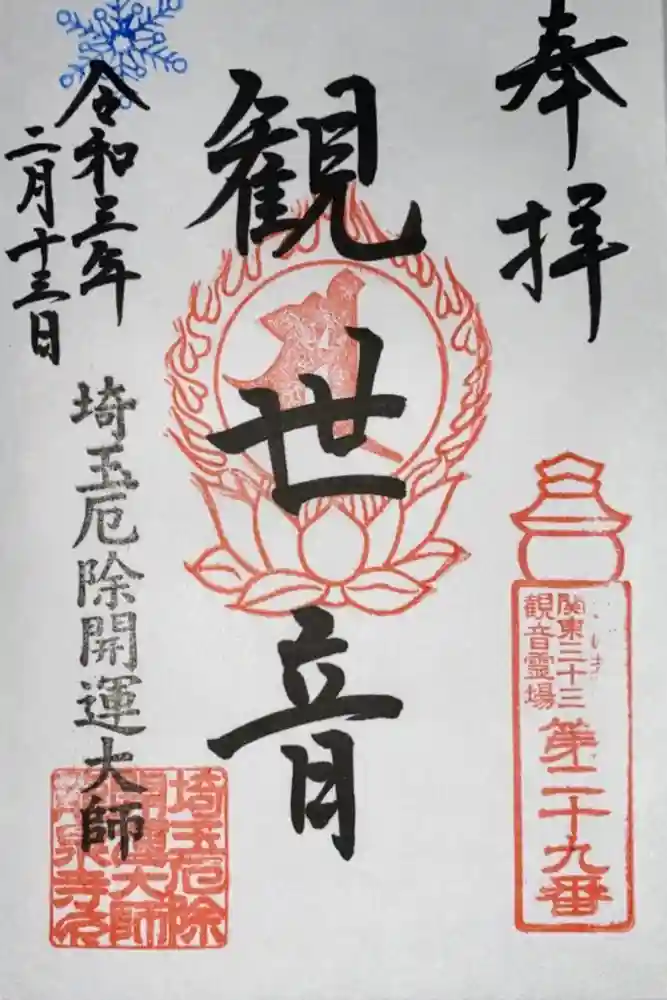 奉拝
関東三十三
観音霊場
第二十九番
観世音
令和三年
二月十三日
埼玉厄除開運大師
埼玉厄除
開運大師
龍泉寺印